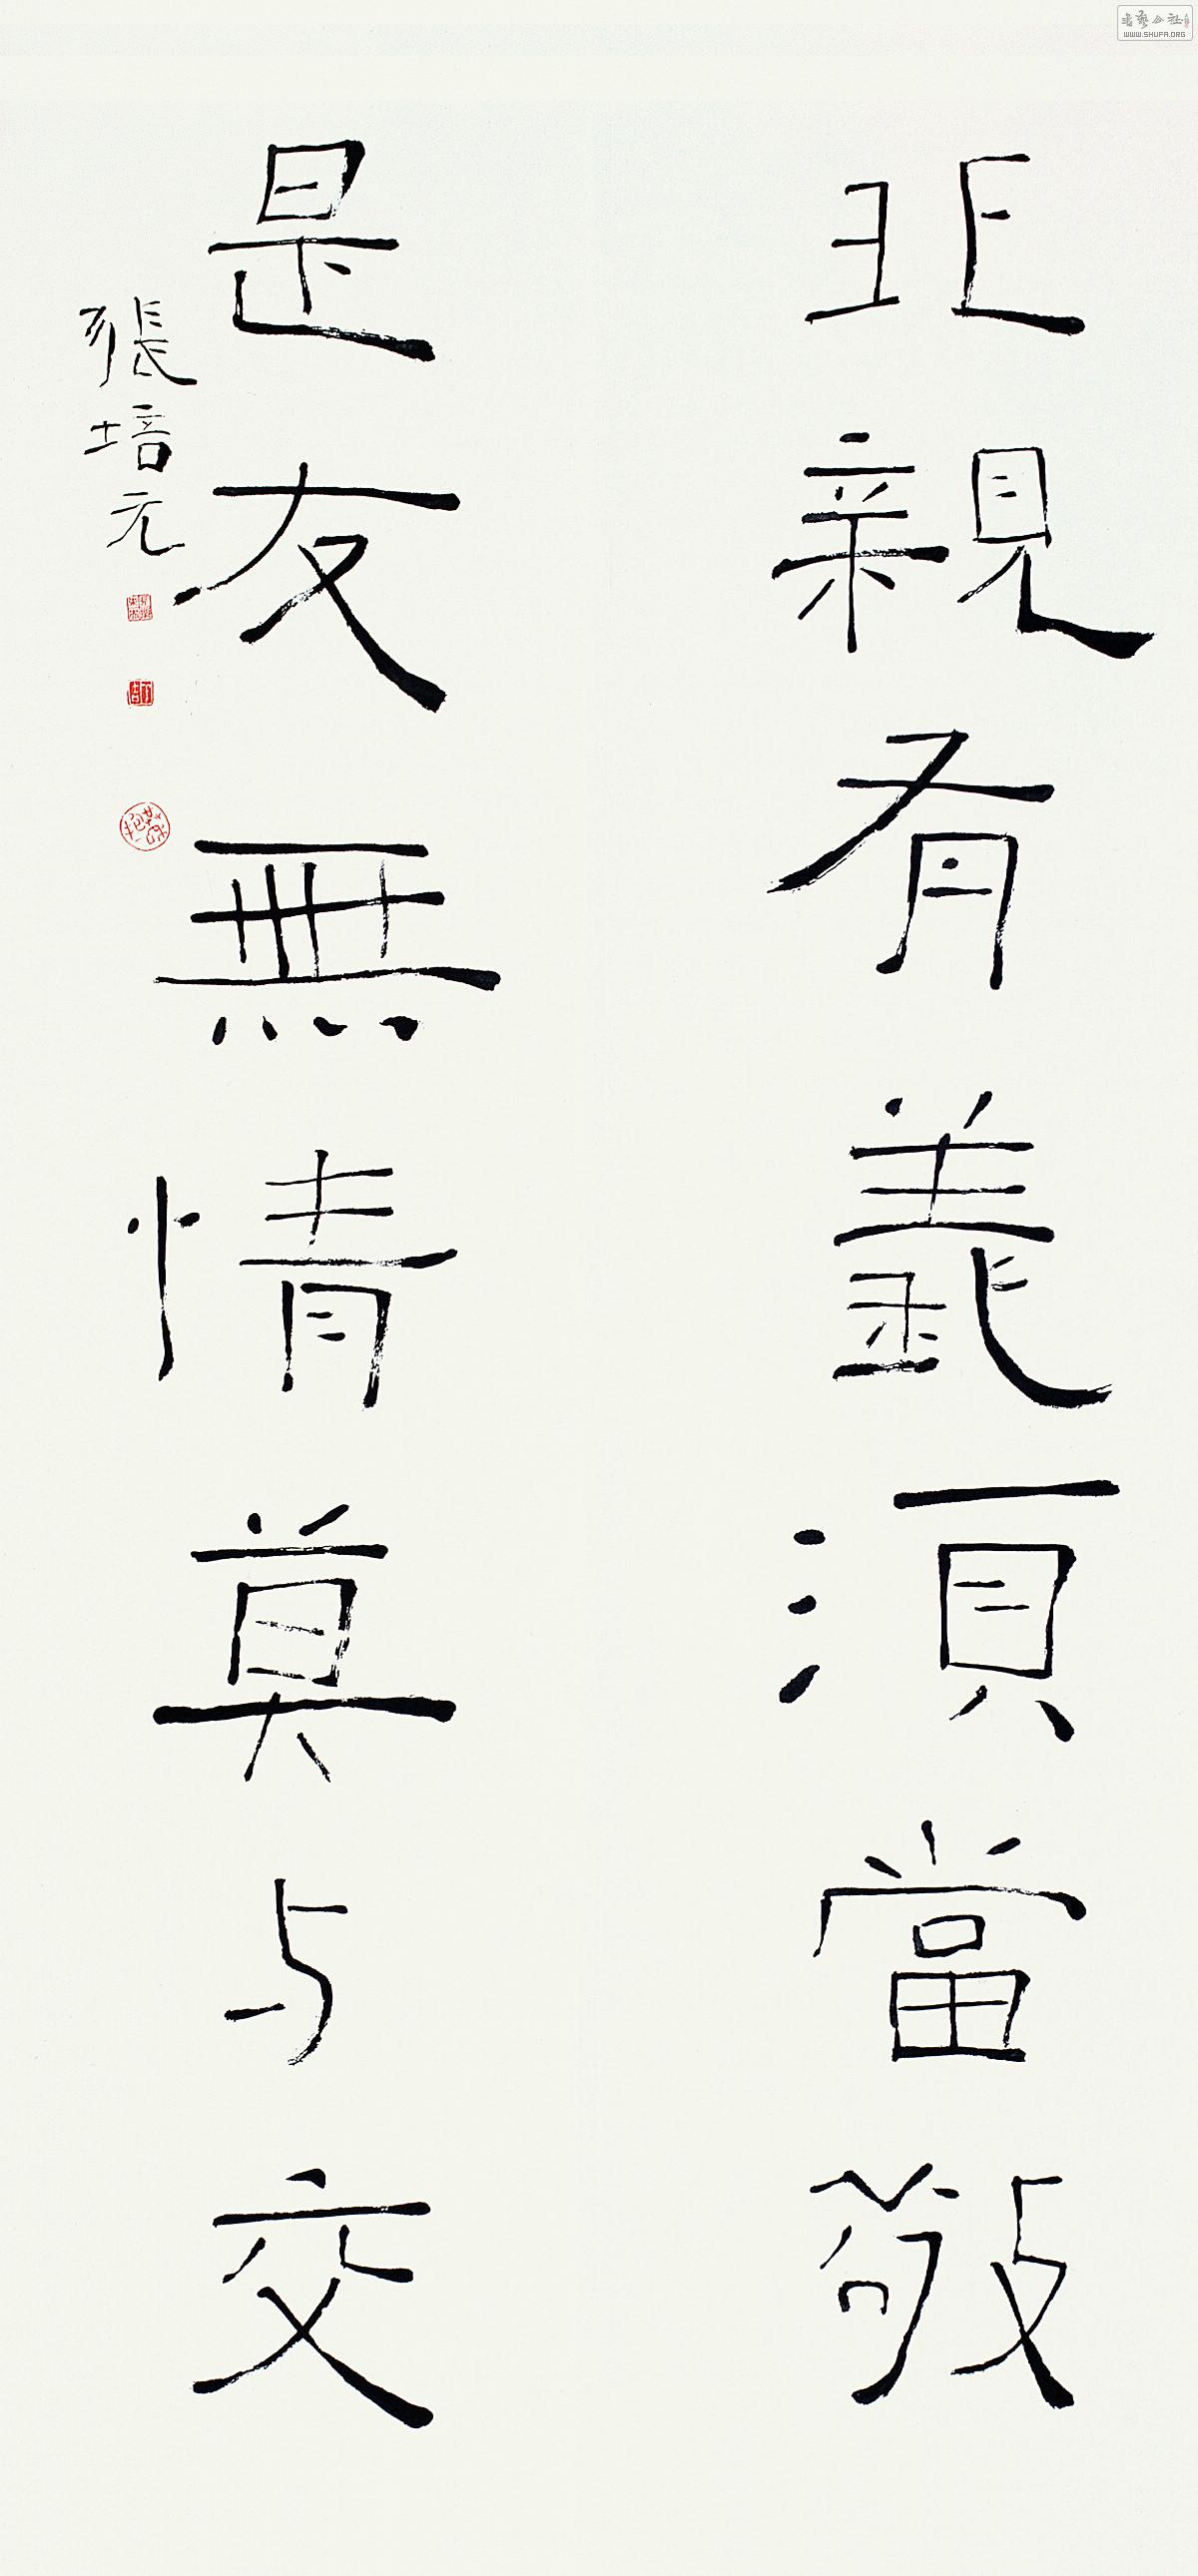 非親有義須當敬
是友無情莫与交
張培元
书艺公社
WWW.SHUFA.ORG